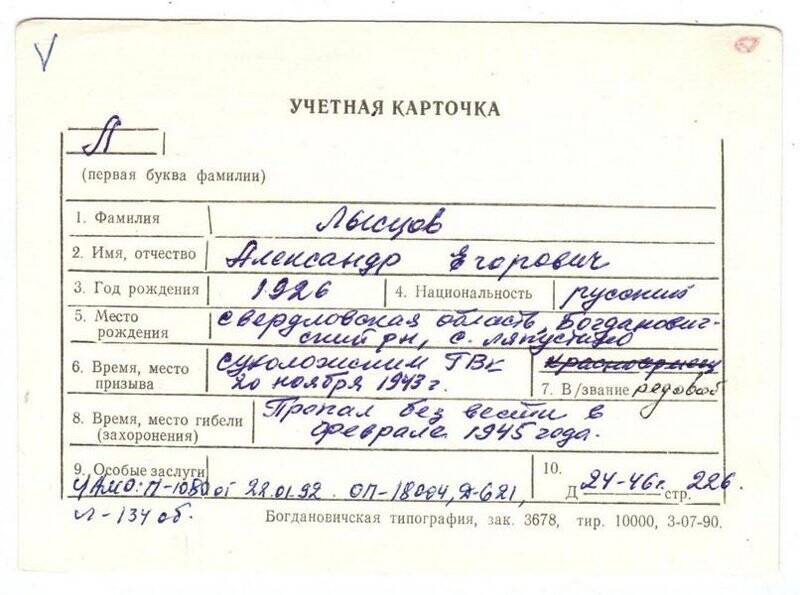 V
УЧЕТНАЯ КАРТОЧКА
Л
(первая буква фамилии)
1. Фамилия Лысцов
2. Имя, отчество Александр Егорович
3. Год рождения 1926 4. Национальность русский
5. Место рождения Свердловская область, Богданович-
ский р-н, с. Ляпустино
6. Время, место призыва Сухоложским ГВК
20 ноября 1943 г.
красноармеец
7. В/звание рядовой
8. Время, место гибели (захоронения) Пропал без вести в
феврале 1945 года.
9. Особые заслуги
ЦАМО: П-1080 от 22.01.92. ОП-18004, Д-621,
Л-134 об.
10.
Д 24-46г. стр. 226.
Богдановичская типография, зак. 3678, тир. 10000, 3-07-90.